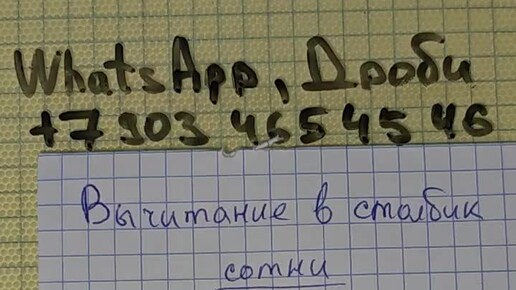 WhatsApp, Дроби
+7 903 465 45 46
Вычитание в столбик
сотни